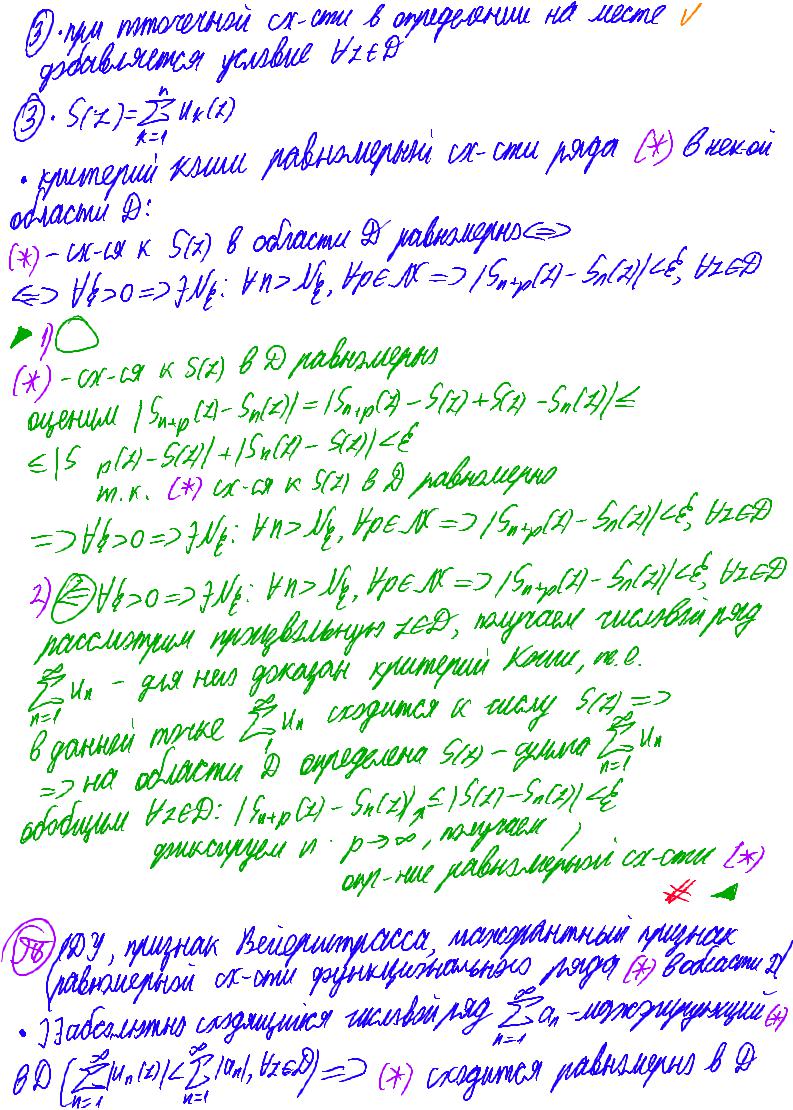 ③ · при поточечной сх-сти в определении на месте ✓
добавляется условие ∀z∈D
③ · S(z)=∑_{k=1}^{n} u_k(z)
· критерий Коши равномерный сх-сти ряда (*) в некой
области D:
(*) - сх-ся к S(z) в области D равномерно <=>
<=> ∀ξ>0 => ∃N_ξ: ∀n>N_ξ, ∀p∈N => |S_{n+p}(z) - S_n(z)|<ξ, ∀z∈D
1)
(*) - сх-ся к S(z) в D равномерно
оценим |S_{n+p}(z) - S_n(z)| = |S_{n+p}(z) - S(z) + S(z) - S_n(z)| ≤
≤ |S p(z) - S(z)| + |S_n(z) - S(z)| < ξ
т.к. (*) сх-ся к S(z) в D равномерно
=> ∀ξ>0 => ∃N_ξ: ∀n>N_ξ, ∀p∈N => |S_{n+p}(z) - S_n(z)|<ξ, ∀z∈D
2) <= ∀ξ>0 => ∃N_ξ: ∀n>N_ξ, ∀p∈N => |S_{n+p}(z) - S_n(z)|<ξ, ∀z∈D
рассмотрим произвольную z∈D, получаем числовой ряд
∑_{n=1}^{∞} u_n - для него доказан критерий Коши, т.е.
в данной точке ∑_{1}^{∞} u_n сходится к числу S(z) =>
=> на области D определена S(z) - сумма ∑_{n=1}^{∞} u_n
обобщим ∀z∈D: |S_{n+p}(z) - S_n(z)| ≤ |S(z) - S_n(z)| < ξ
фиксируем n · p→∞, получаем
опр-ние равномерной сх-сти (*)
#
ДУ, признак Вейерштрасса, мажорантный признак
(равномерной сх-сти функционального ряда (*) в области D)
· ∃ абсолютно сходящийся числовой ряд ∑_{n=1}^{∞} a_n - мажорирующий (*)
в D (∑_{n=1}^{∞} |u_n(z)| < ∑_{n=1}^{∞} |a_n|, ∀z∈D) => (*) сходится равномерно в D